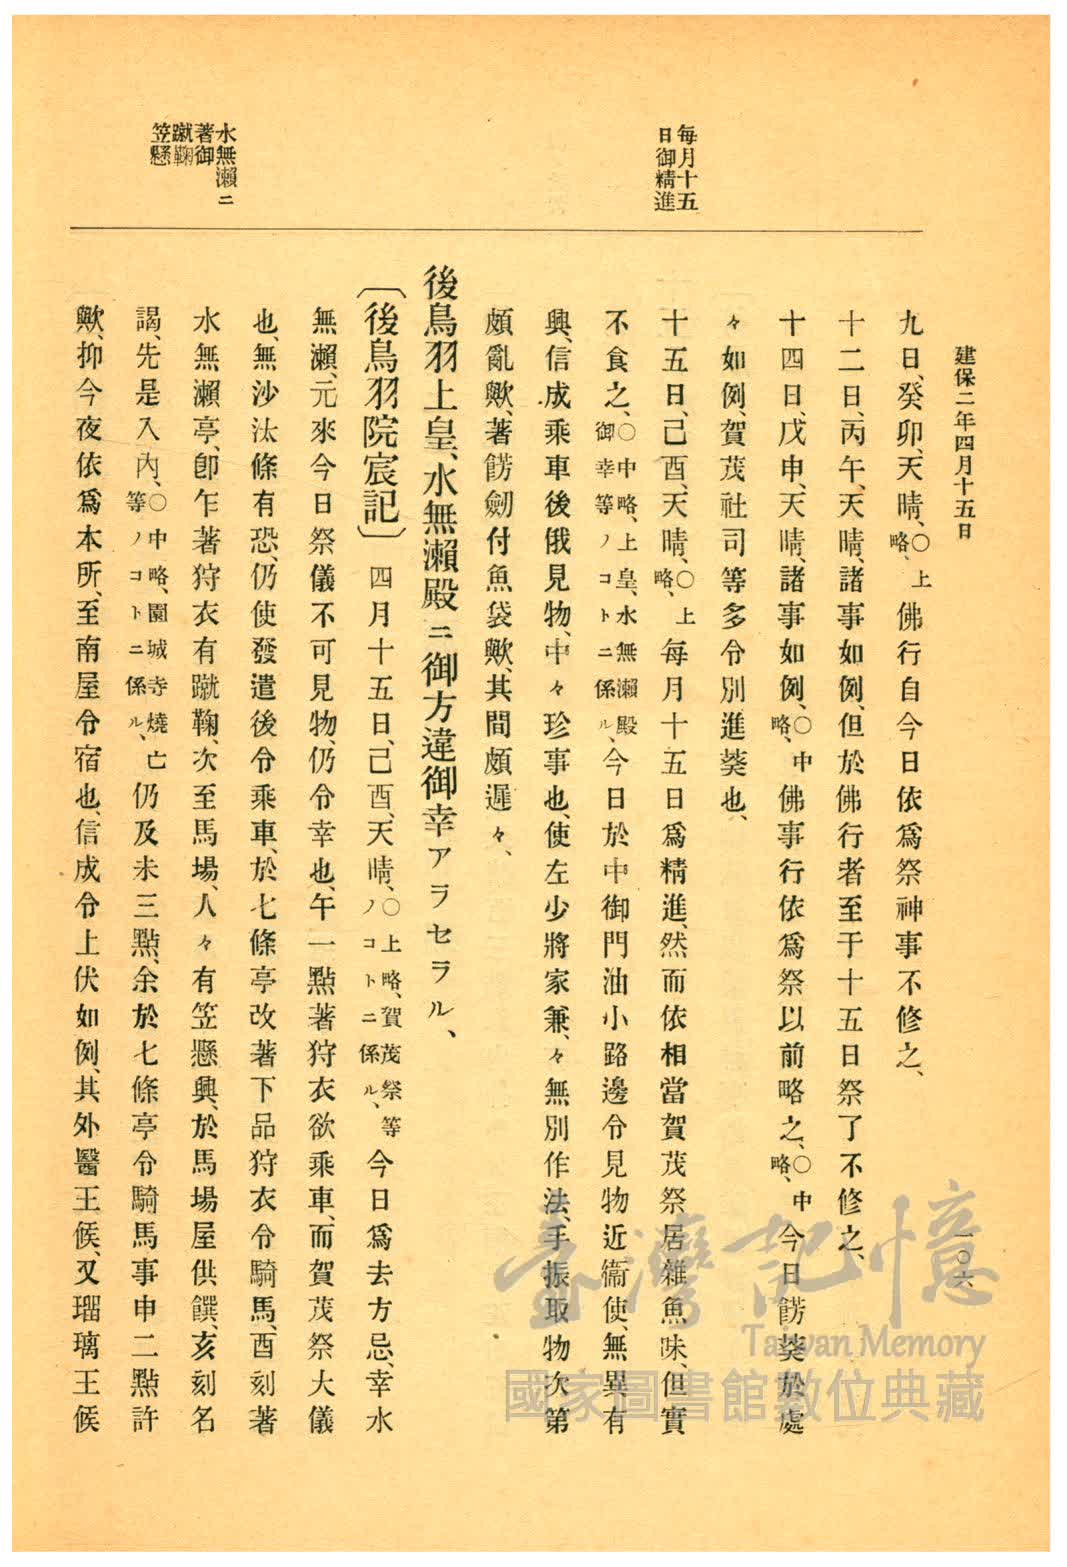 建保二年四月十五日
一〇六
毎月十五
日御精進
水無瀬ニ
著御
蹴鞠
笠懸
九日、癸卯、天晴、〇上略、佛行自今日依爲祭神事不修之、
十二日、丙午、天晴、諸事如例、但於佛行者至于十五日祭了不修之、
十四日、戊申、天晴、諸事如例、〇中略、佛事行依爲祭以前略之、〇中略、今日餝葵於處
々如例、賀茂社司等多令別進葵也、
十五日、己酉、天晴、〇上略、毎月十五日爲精進、然而依相當賀茂祭居雜魚味、但實
不食之、〇中略、上皇、水無瀬殿御幸等ノコトニ係ル、今日於中御門油小路邊令見物近衞使、無異有
興、信成乘車後俄見物、中々珍事也、使左少將家兼、々無別作法、手振取物次第
頗亂歟、著餝劒付魚袋歟、其間頗遲々、
後鳥羽上皇、水無瀬殿ニ御方違御幸アラセラル、
〔後鳥羽院宸記〕四月十五日、己酉、天晴、〇上略、賀茂祭等ノコトニ係ル、今日爲去方忌、幸水
無瀬、元來今日祭儀不可見物、仍令幸也、午一點著狩衣欲乘車、而賀茂祭大儀
也、無沙汰條有恐、仍使發遣後令乘車、於七條亭改著下品狩衣令騎馬、酉刻著
水無瀬亭、卽乍著狩衣有蹴鞠、次至馬場、人々有笠懸興、於馬場屋供饌、亥刻名
謁、先是入內、〇中略、園城寺燒亡等ノコトニ係ル、仍及未三點、余於七條亭令騎馬事申二點許
歟、抑今夜依爲本所、至南屋令宿也、信成令上伏如例、其外醫王候、又瑠璃王候
臺灣記憶
Taiwan Memory
國家圖書館數位典藏